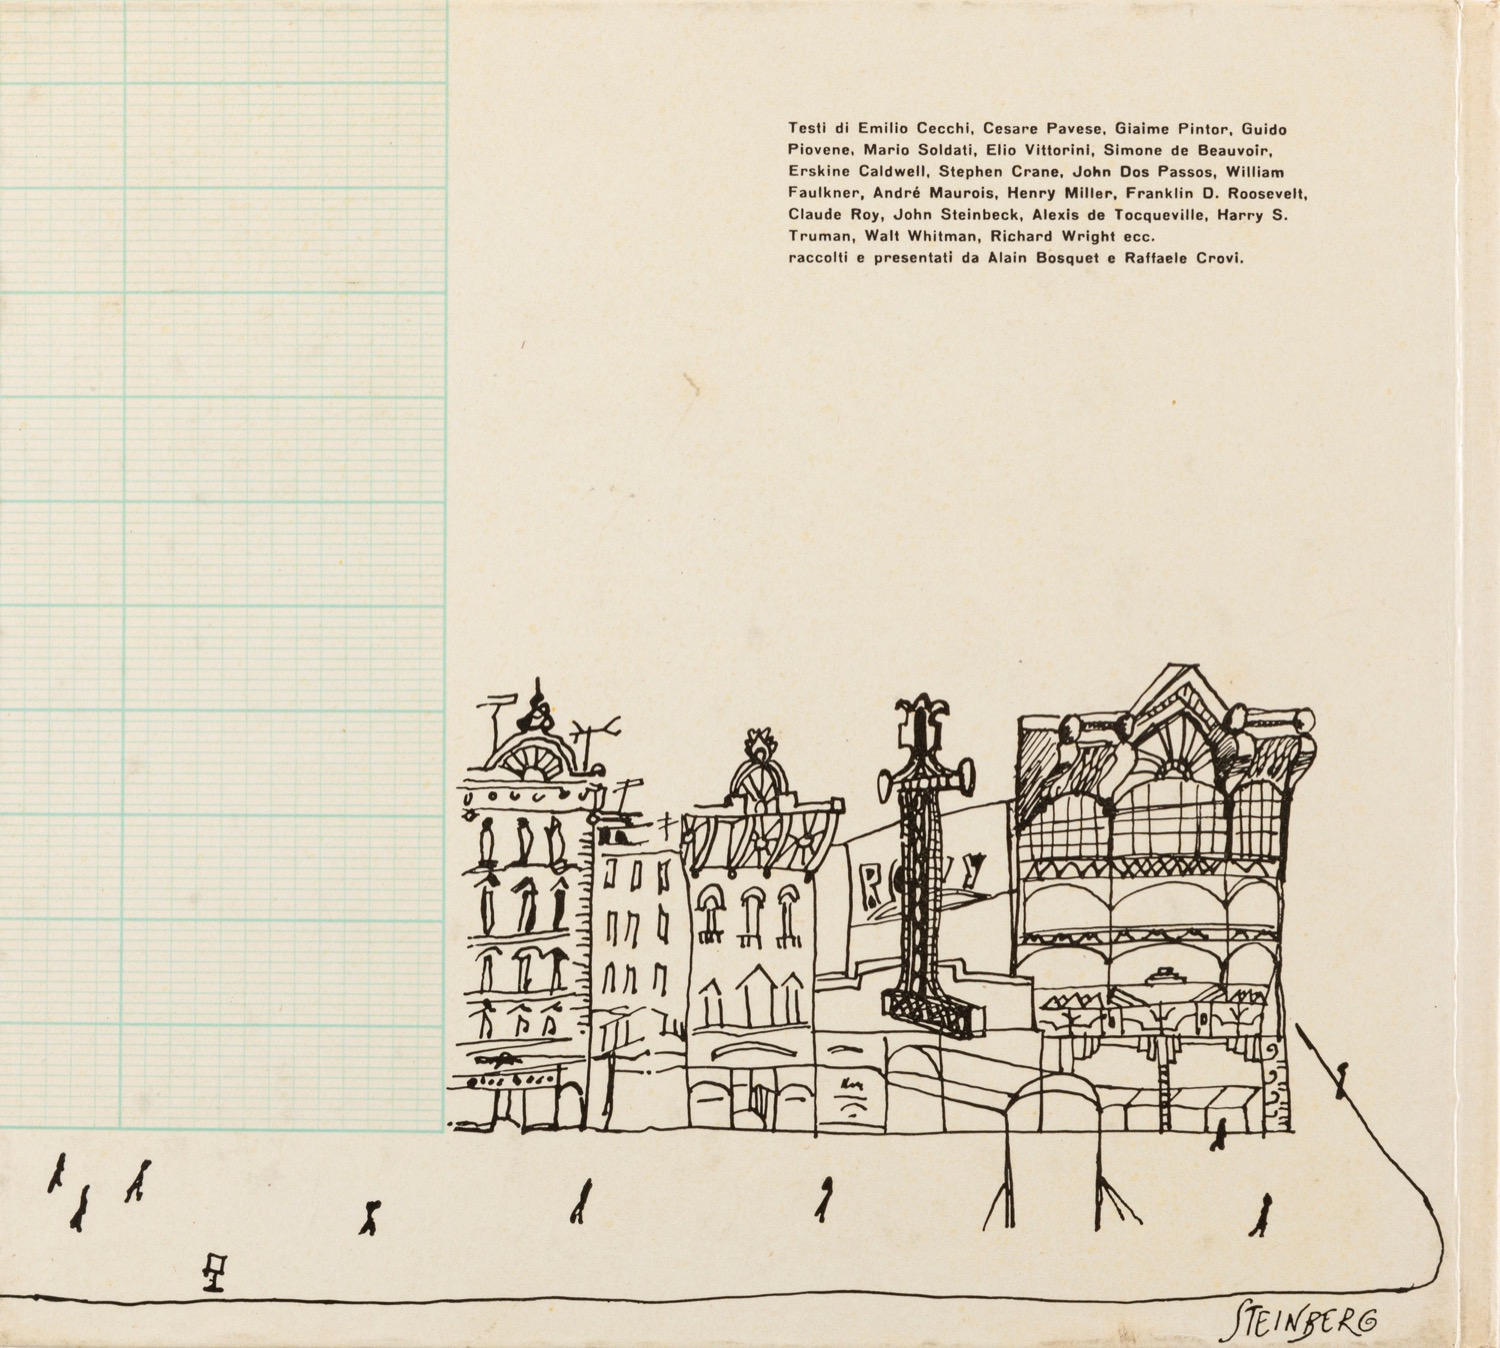 Testi di Emilio Cecchi, Cesare Pavese, Giaime Pintor, Guido
Piovene, Mario Soldati, Elio Vittorini, Simone de Beauvoir,
Erskine Caldwell, Stephen Crane, John Dos Passos, William
Faulkner, André Maurois, Henry Miller, Franklin D. Roosevelt,
Claude Roy, John Steinbeck, Alexis de Tocqueville, Harry S.
Truman, Walt Whitman, Richard Wright ecc.
raccolti e presentati da Alain Bosquet e Raffaele Crovi.
STEINBERG